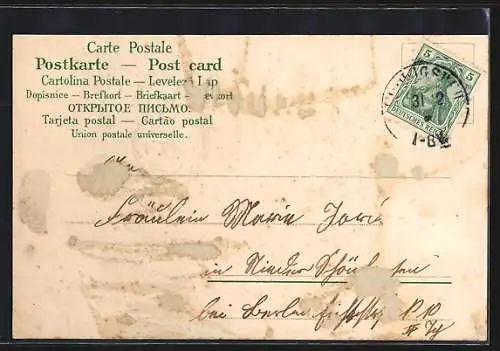 Carte Postale
Postkarte — Post card
Cartolina Postale – Levelez Lap
Dopisnice – Brefkort – Briefkaart –
ОТКРЫТОЕ ПИСЬМО.
Tarjeta postal — Cartão postal
Union postale universelle.
5 5
DEUTSCHES REICH
31 2
An
Fräulein Marie
in Nieder Schön
bei Berlin